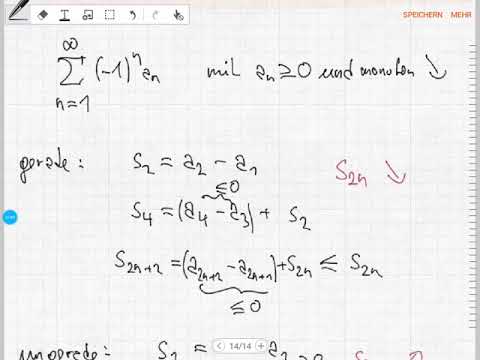 SPEICHERN MEHR
∞
∑ (-1)ⁿ aₙ mit aₙ ≥ 0 und monoton ↘
n=1
gerade: S₂ = a₂ - a₁ S₂ₙ ↘
≤0
S₄ = (a₄ - a₃) + S₂
S₂ₙ₊₂ = (a₂ₙ₊₂ - a₂ₙ₊₁) + S₂ₙ ≤ S₂ₙ
≤0
14/14
ungerade: